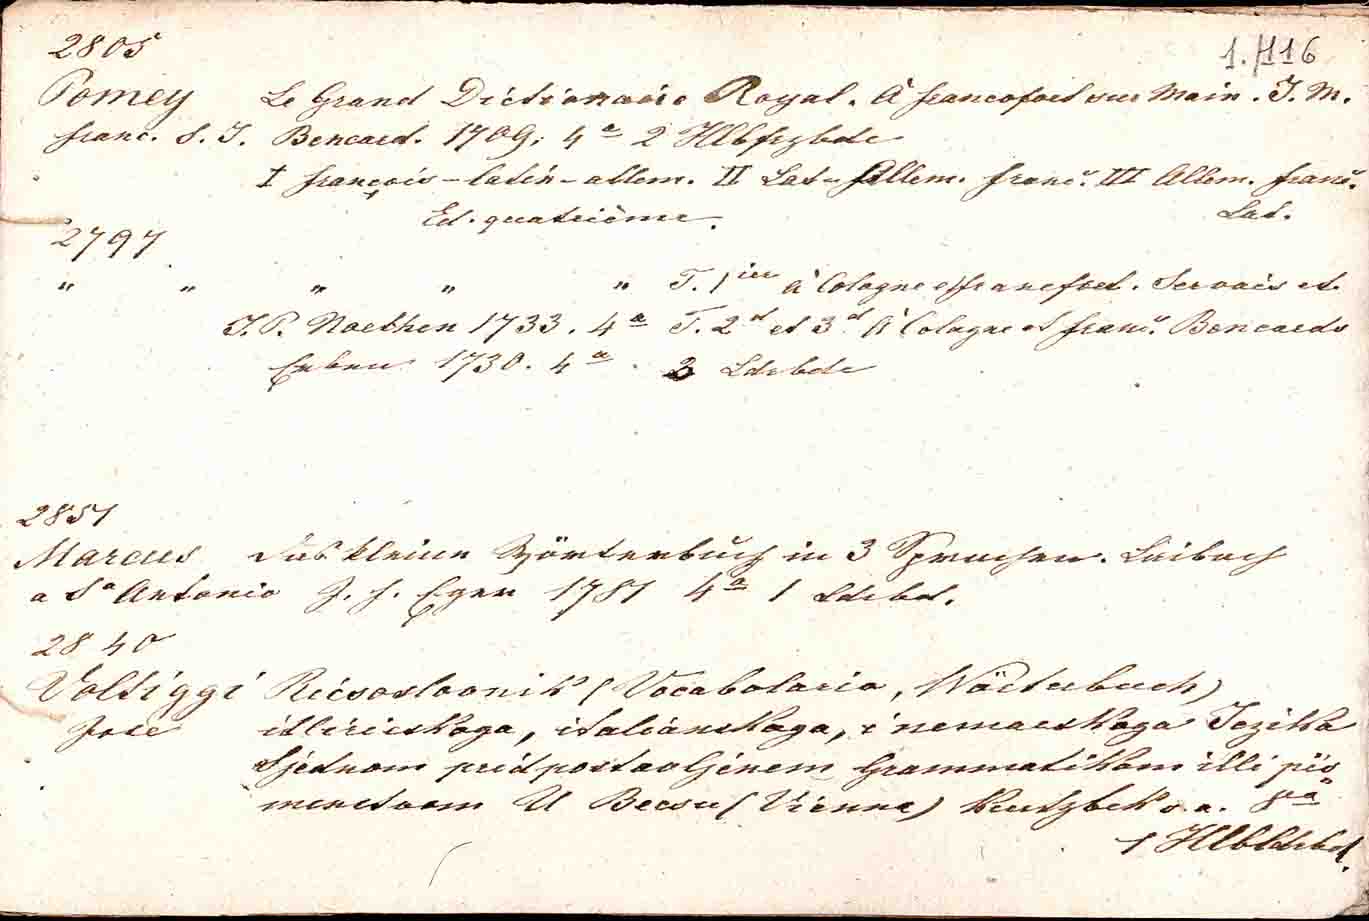 2805
1. 116
Pomey Le Grand Dictionaire Royal. À francofort sur Main. J. M.
franc. S. J. Bencard. 1709; 4ª 2 Hlbfrzbde
I françois – latin – allem. II Lat. Allem. franc. III Allem. franc.
Ed. quatrième. Lat.
2797
" " " " " T. 1ier à Cologne et francfort. Servais et
J. P. Noethen 1733. 4ª T. 2d et 3d À Cologne et franc. Bencards
Erben 1730. 4ª. 3 Ldrbde
2851
Marcus Das kleine Wörterbuch in 3 Sprachen. Laibach
a Sº Antonio J. f. Eger 1781 4ª 1 Ldrbd.
2840
Voltiggi Ricsoslovnik (Vocabolario, Wörterbuch)
Jose illiricskoga, italianskoga, i nemacskoga Jezika
S jednom pridpostavljenem Grammatikom illi pis-
menstvom U Becsu (Vienna) Kurtzbek s. a. 8ª
1 Hlbldrbd.